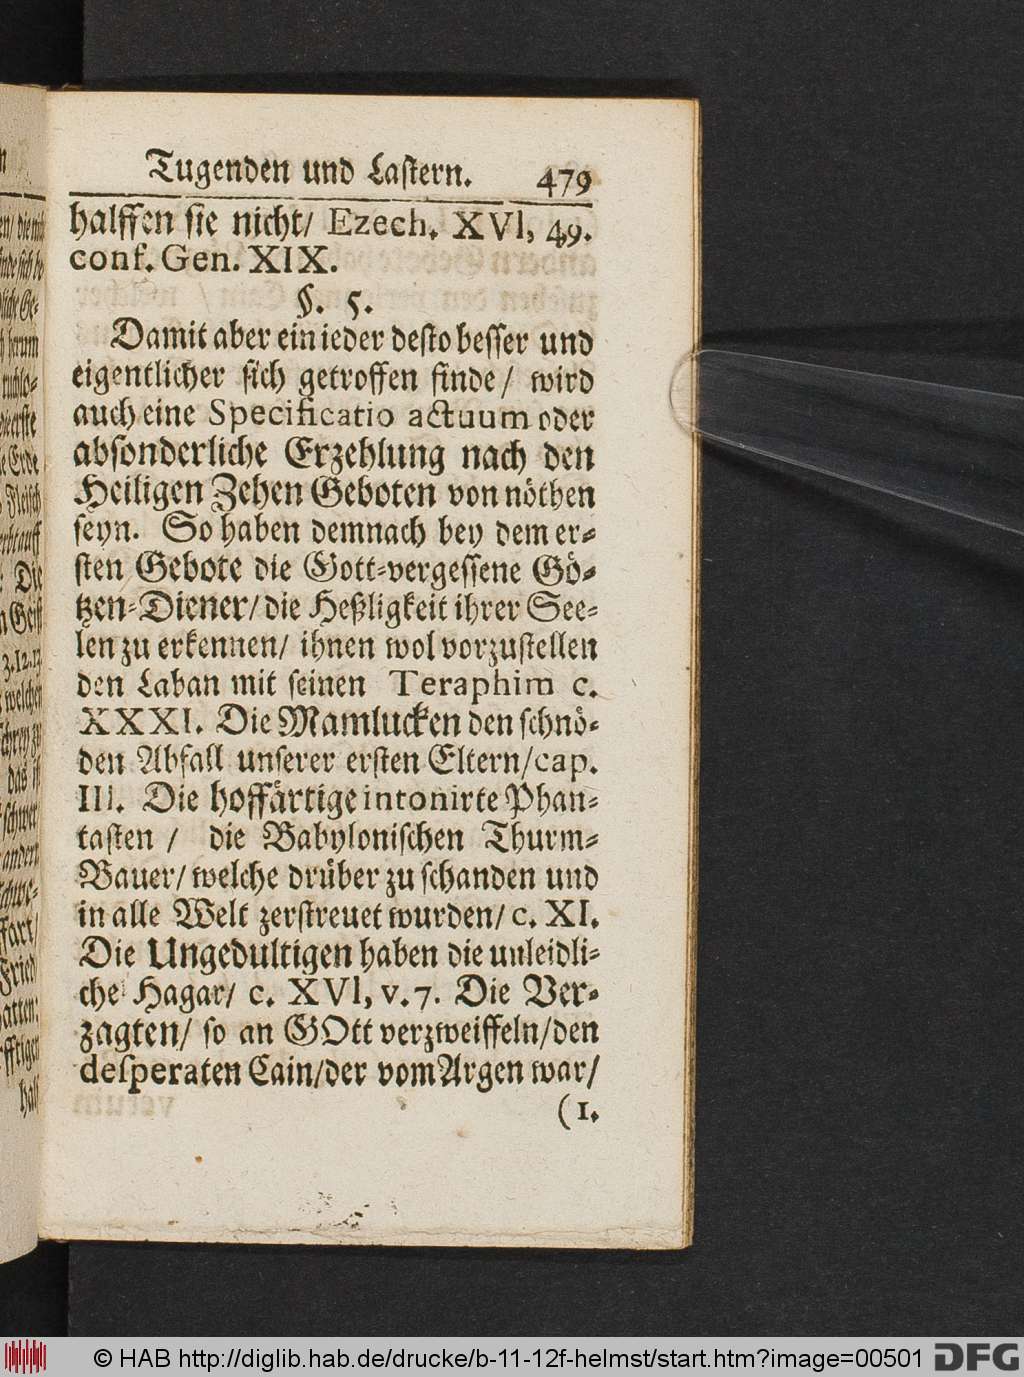 Tugenden und Lastern. 479
halffen sie nicht/ Ezech. XVI, 49.
conf. Gen. XIX.
§. 5.
Damit aber ein ieder desto besser und
eigentlicher sich getroffen finde/ wird
auch eine Specificatio actuum oder
absonderliche Erzehlung nach den
Heiligen Zehen Geboten von nöthen
seyn. So haben demnach bey dem er-
sten Gebote die Gott-vergessene Gö-
tzen-Diener/ die Heßligkeit ihrer See-
len zu erkennen/ ihnen wol vorzustellen
den Laban mit seinen Teraphim c.
XXXI. Die Mamlucken den schnö-
den Abfall unserer ersten Eltern/ cap.
III. Die hoffärtige intonirte Phan-
tasten / die Babylonischen Thurm-
Bauer/ welche drüber zu schanden und
in alle Welt zerstreuet wurden/ c. XI.
Die Ungedultigen haben die unleidli-
che Hagar/ c. XVI, v. 7. Die Ver-
zagten/ so an GOtt verzweiffeln/ den
desperaten Cain/ der vom Argen war/
(1.
© HAB http://diglib.hab.de/drucke/b-11-12f-helmst/start.htm?image=00501 DFG